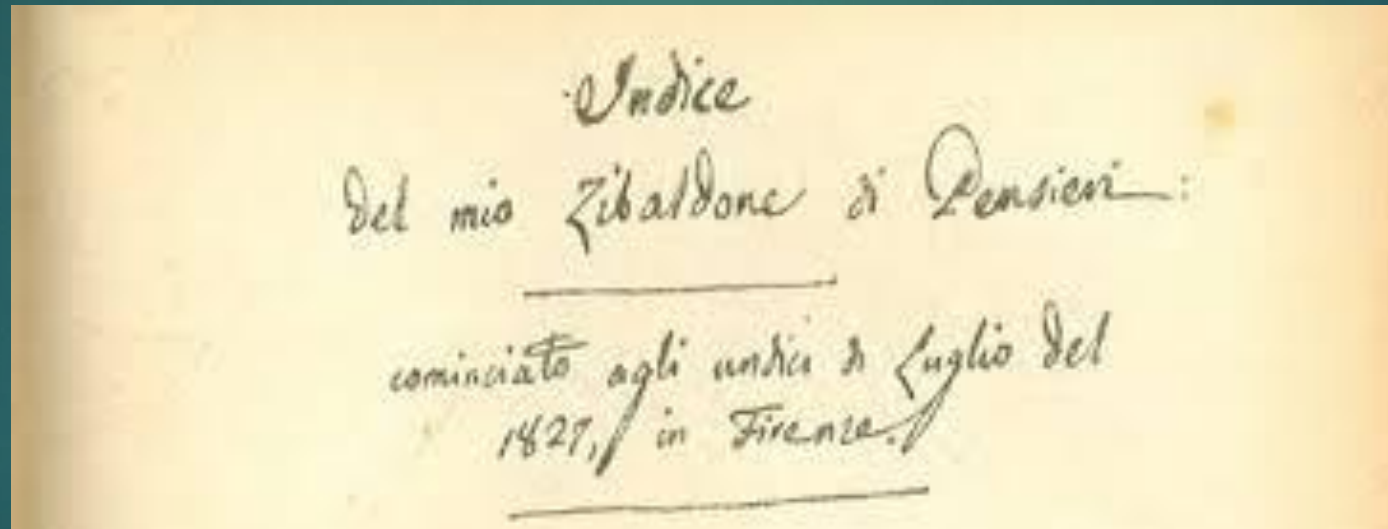 Indice
del mio Zibaldone di Pensieri:
cominciato agli undici di Luglio del
1827, in Firenze.